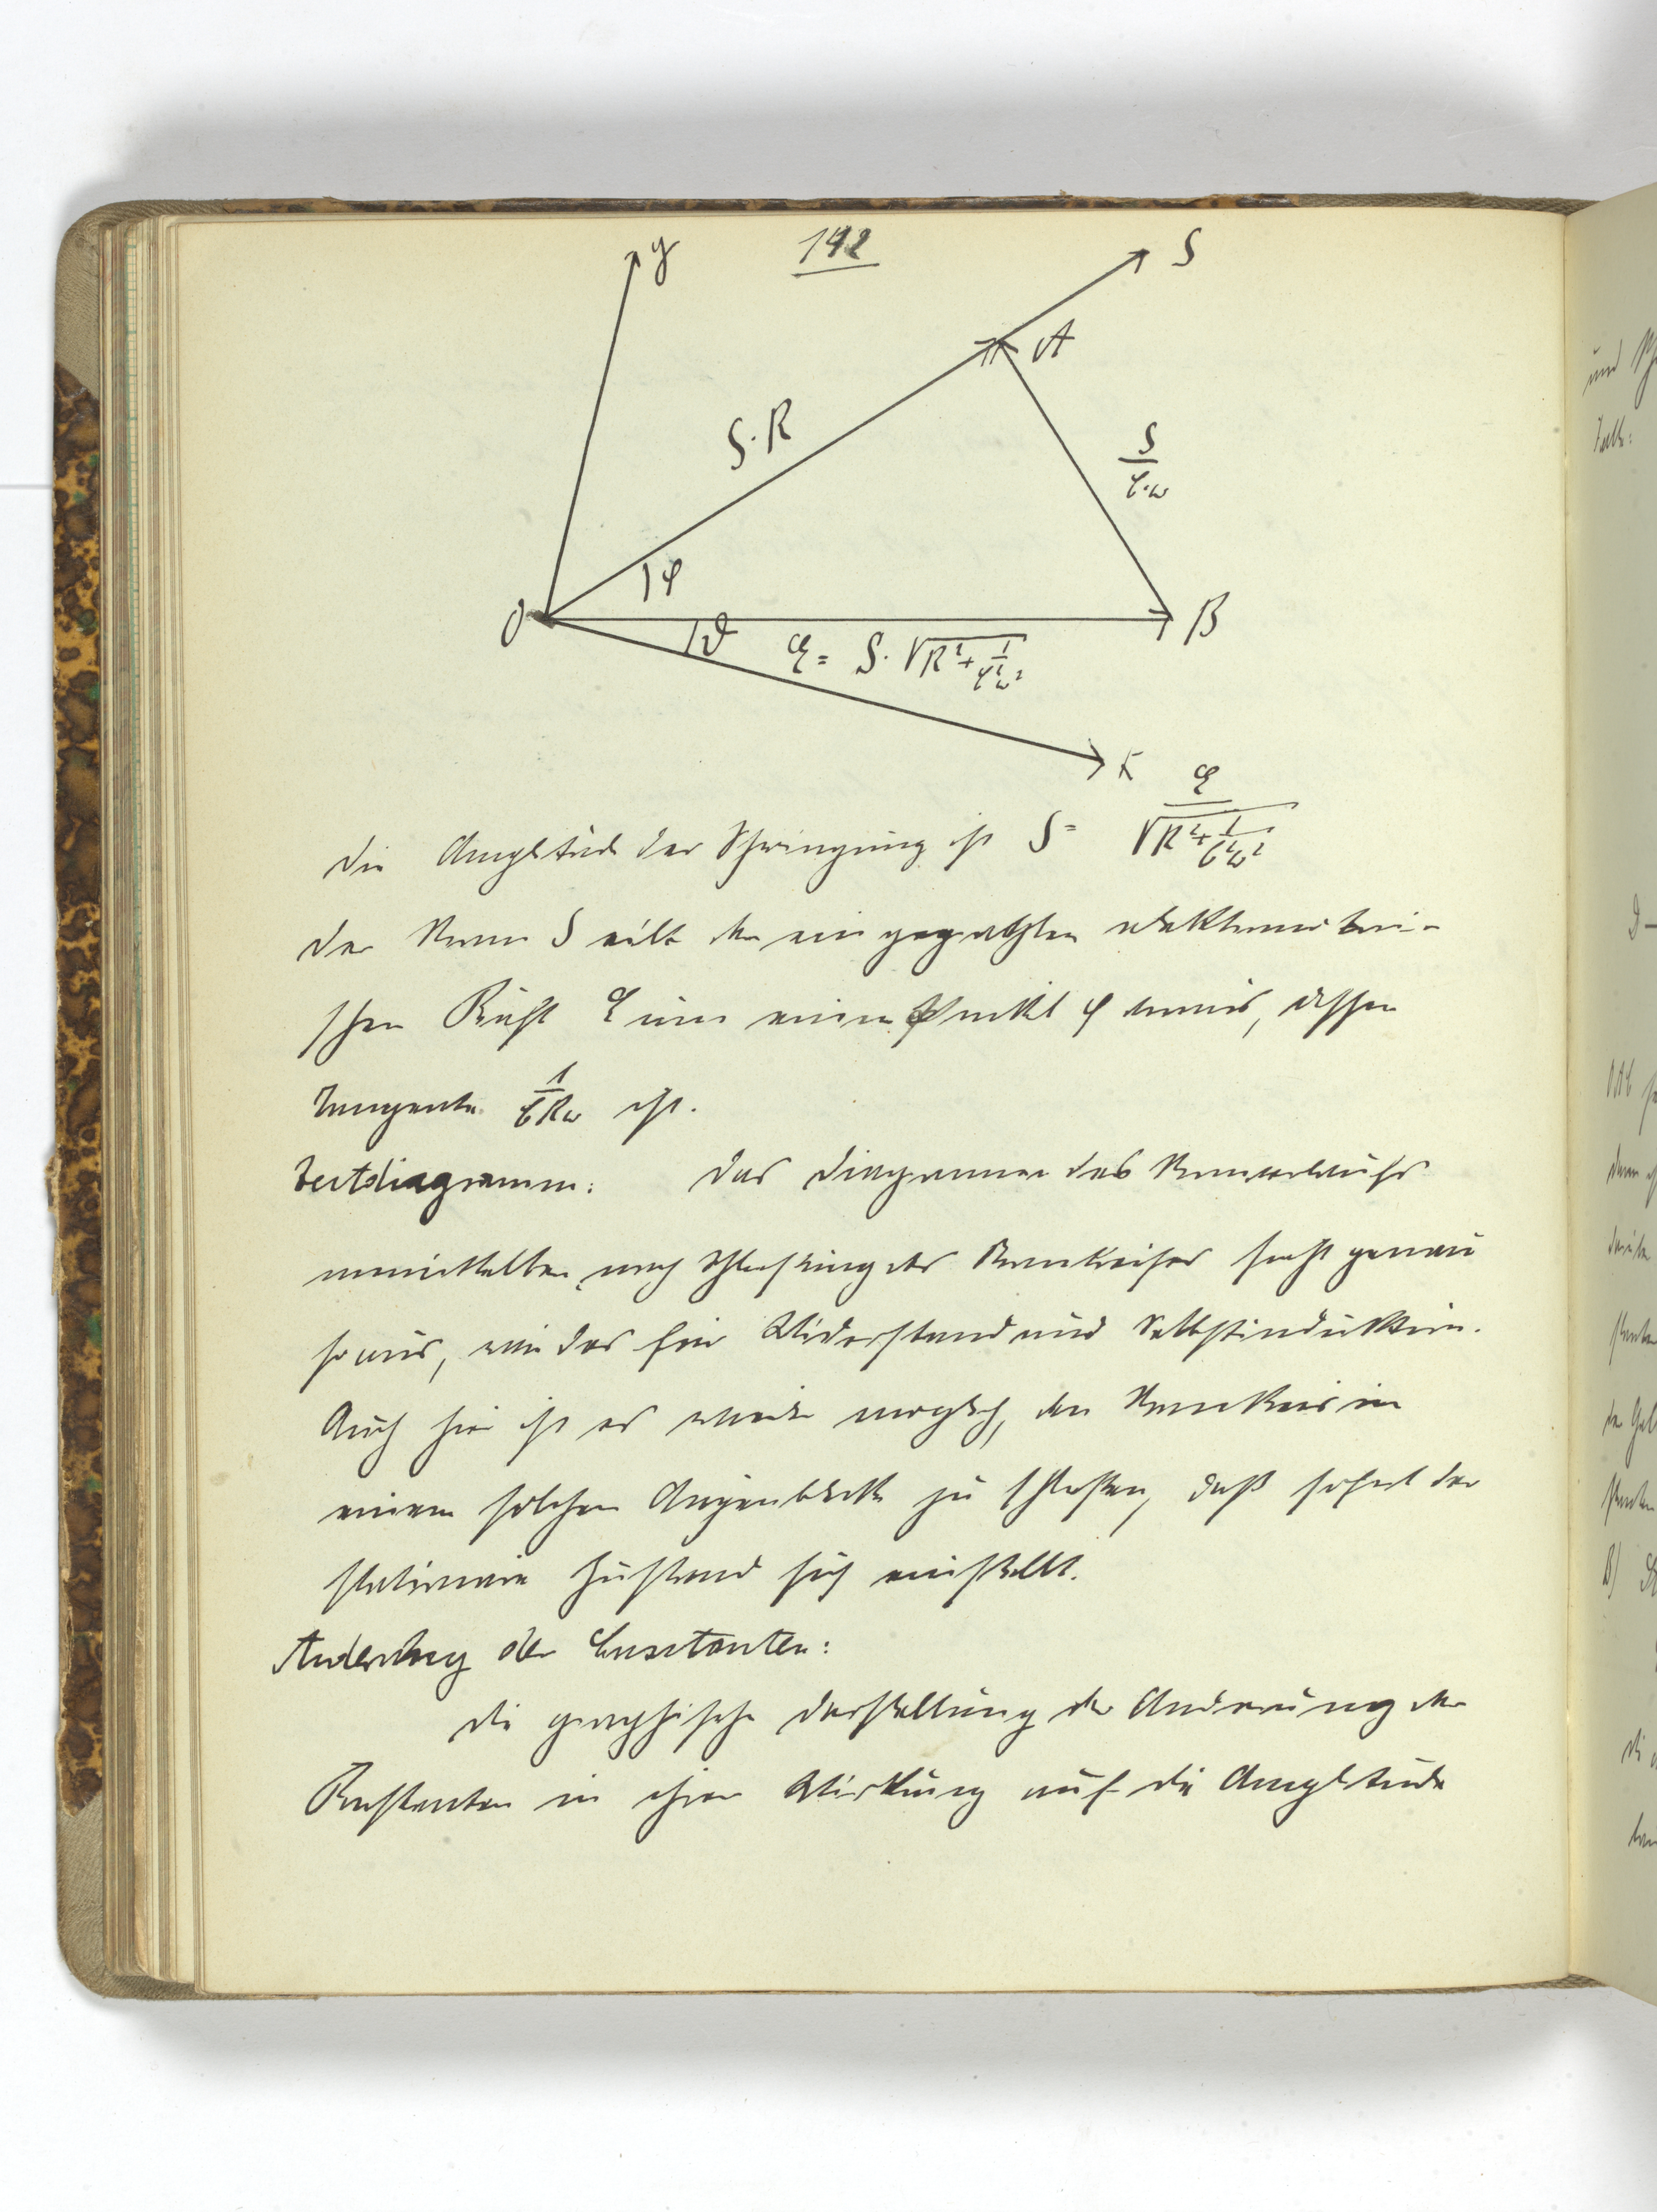 142
y
S
A
S·R
S/(C·ω)
φ
O
B
ϑ
E = S·√(R²+1/(C²ω²))
x
Die Amplitude der Schwingung ist S = E/√(R²+1/(C²ω²))
Der Strom S eilt der eingeprägten elektromotori-
schen Kraft E um einen Winkel φ voraus, dessen
Tangente 1/(CRω) ist.
Zeitdiagramm: Das Diagramm des Stromverlaufs
unmittelbar nach Schließung des Stromkreises sieht genau
so aus, wie das für Widerstand und Selbstinduktion.
Auch hier ist es wieder möglich, den Stromkreis in
einem solchen Augenblick zu schließen, daß sofort der
stationäre Zustand sich einstellt.
Änderung der Constanten:
Die graphische Darstellung der Änderung der
Konstanten in ihrer Wirkung auf die Amplitude
und
Falle: